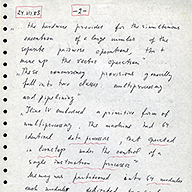 24 VII 85
- 2 -
" the hardware provides for the simultaneous
execution of a large number of the
separate pairwise operations, that
make up the vector operation "
"These concurrency provisions generally
fall into two classes multiprocessing
and pipelining "
embodied a primitive form of
multiprocessing. The machine had 64
identical data processors that operated
in lockstep under the control of a
single instruction processor
Memory was partitioned into 64 modules
each module